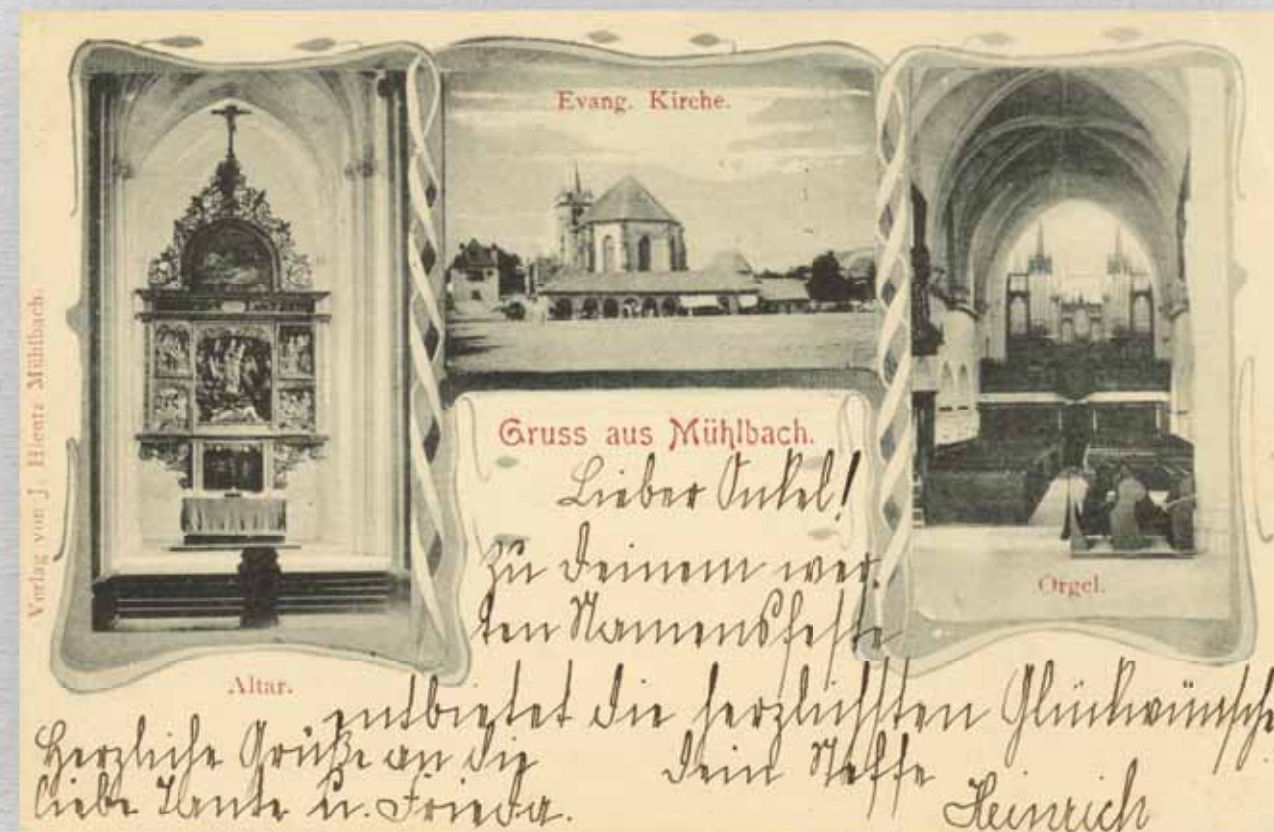 Verlag von J. Hientz Mühlbach.
Evang. Kirche.
Altar.
Orgel.
Gruss aus Mühlbach.
Lieber Onkel!
Zu Deinem wer-
ten Namensfeste
entbietet die herzlichsten Glückwünsche
Dein Neffe
Heinrich
Herzliche Grüße an die
liebe Tante u. Frieda.